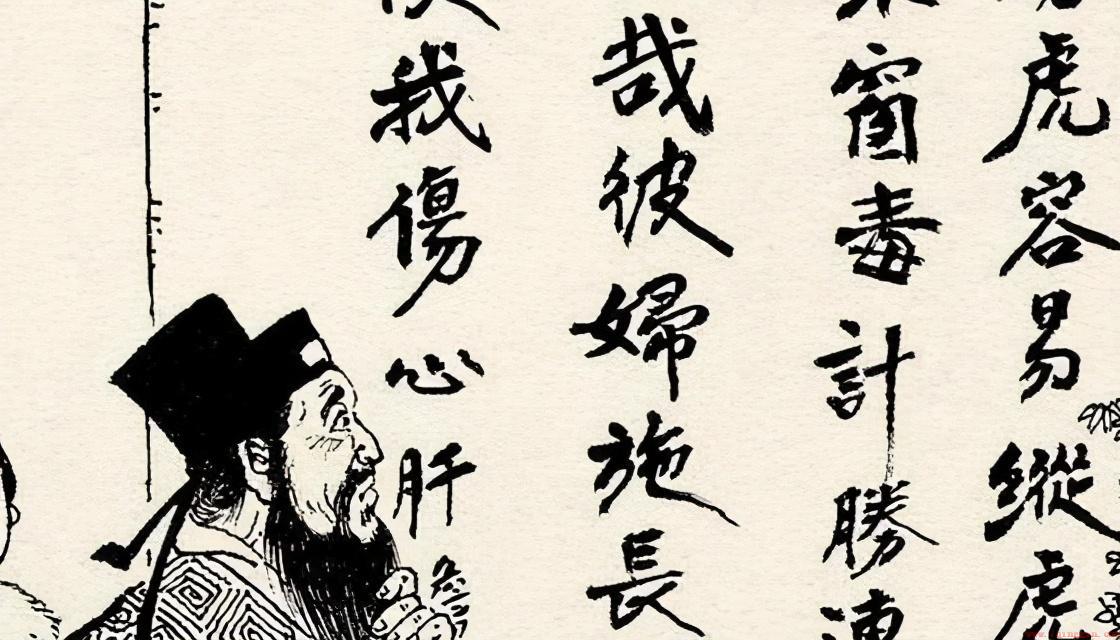 虎容易縱虎
窗毒計勝連
哉彼婦施長
我傷心肝